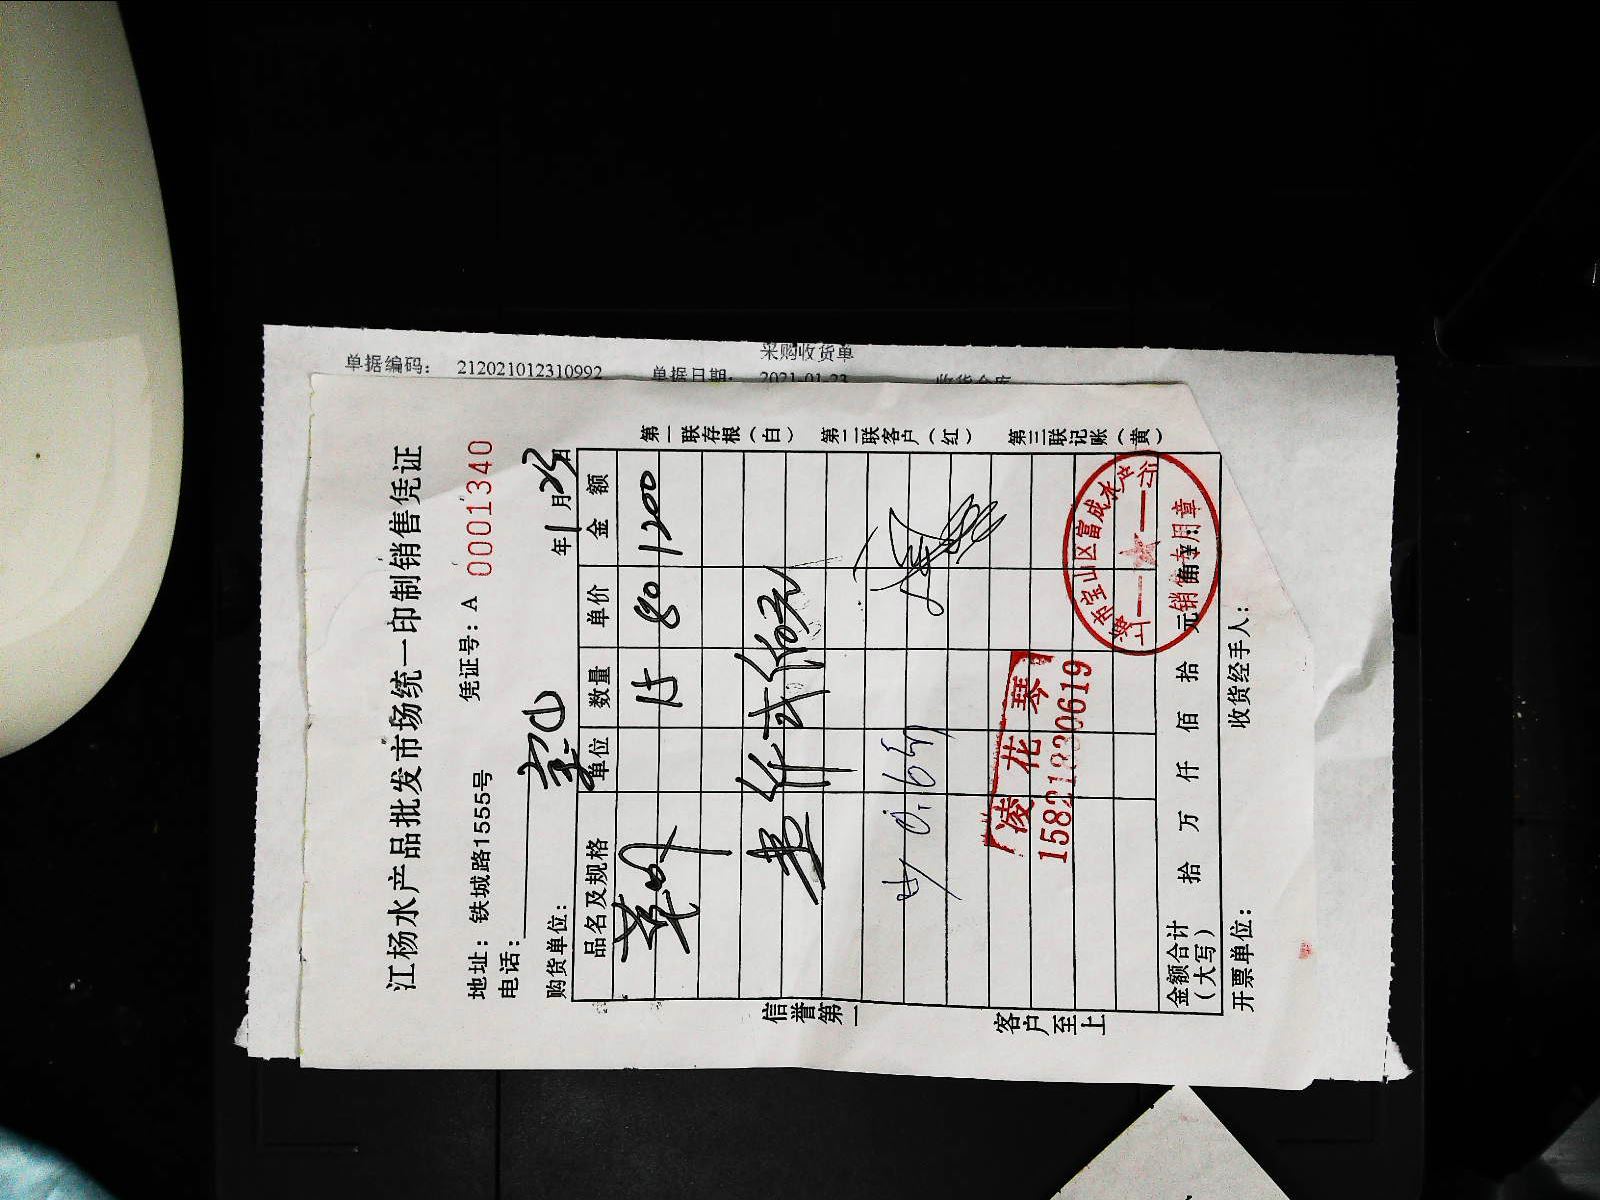 采购收货单
单据编码： 212021012310992 单据日期： 2021-01-23 收货仓库
江杨水产品批发市场统一印制销售凭证
地址：铁城路1555号 凭证号：A 0001340
电话：
购货单位： 年1月23日
品名及规格 单位 数量 单价 金额
15 80 1200
壹仟贰佰元
凌花琴
15821230619
金额合计（大写） 拾 万 仟 佰 拾 元 角 分
开票单位： 收货经手人：
信誉第一
客户至上
第一联存根（白） 第二联客户（红） 第三联记账（黄）
宝山区富成水产
销售专用章